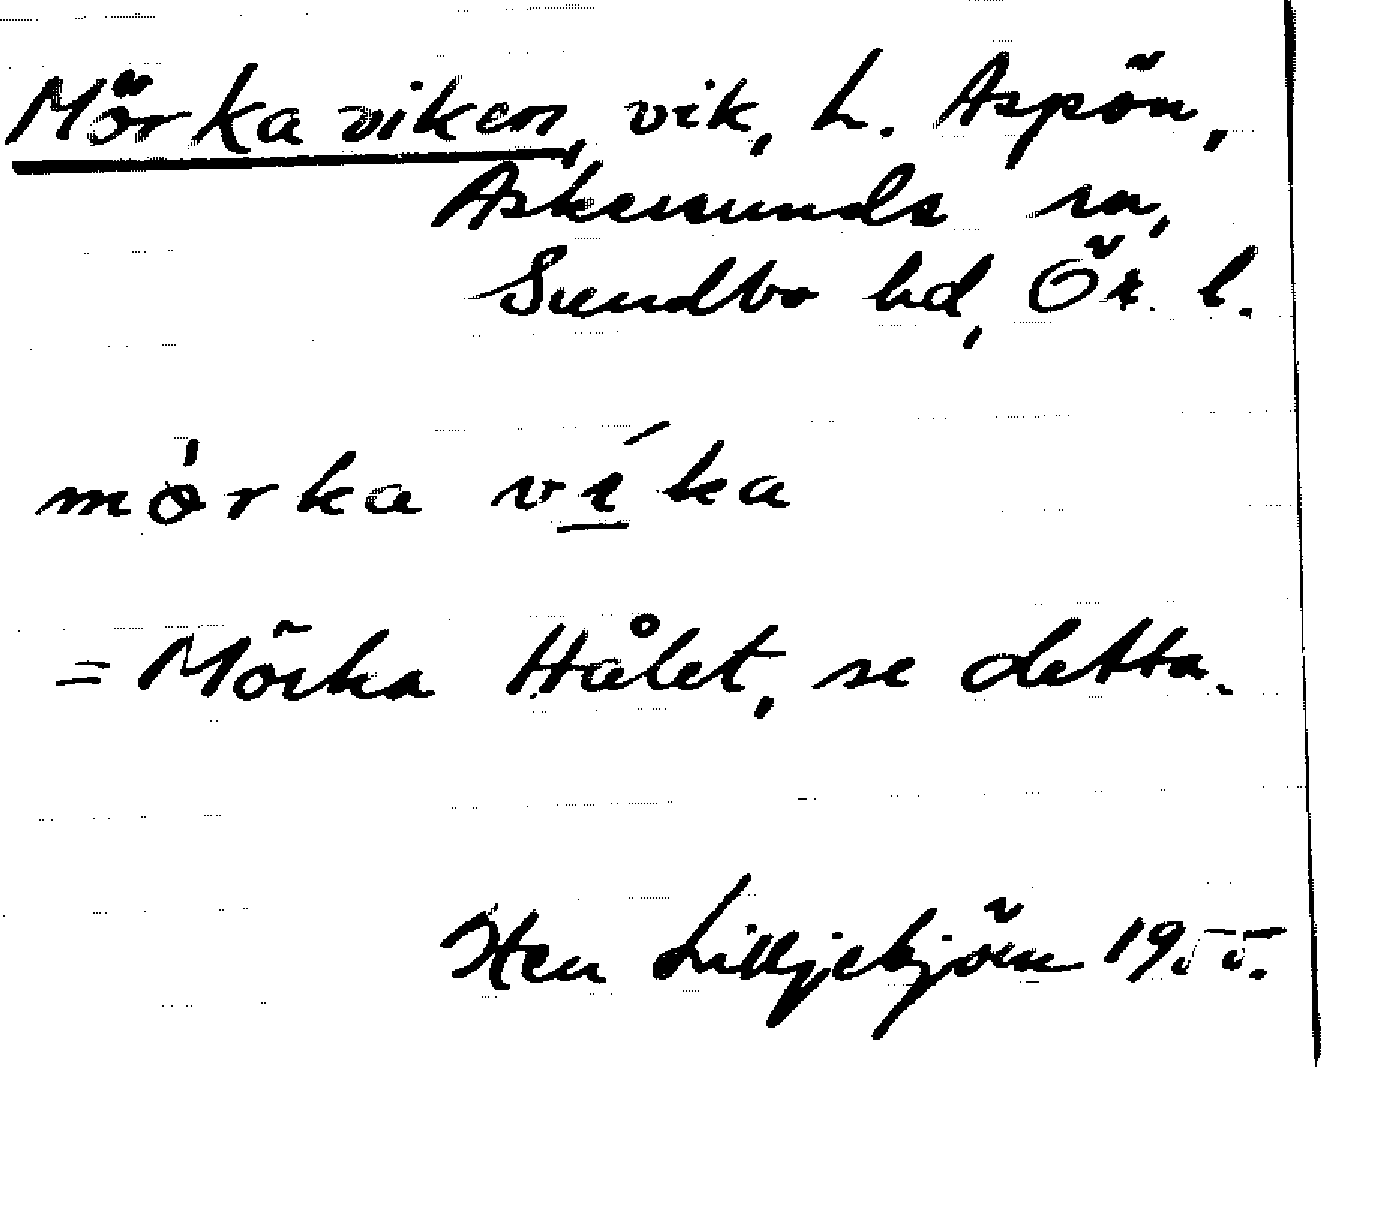 Mörka viken, vik, L. Aspön,
Askersunds sn,
Sundbo hd, Ör. l.
mörka víka
= Mörka Hålet, se detta.
Hen Lilljebjörn 1955.